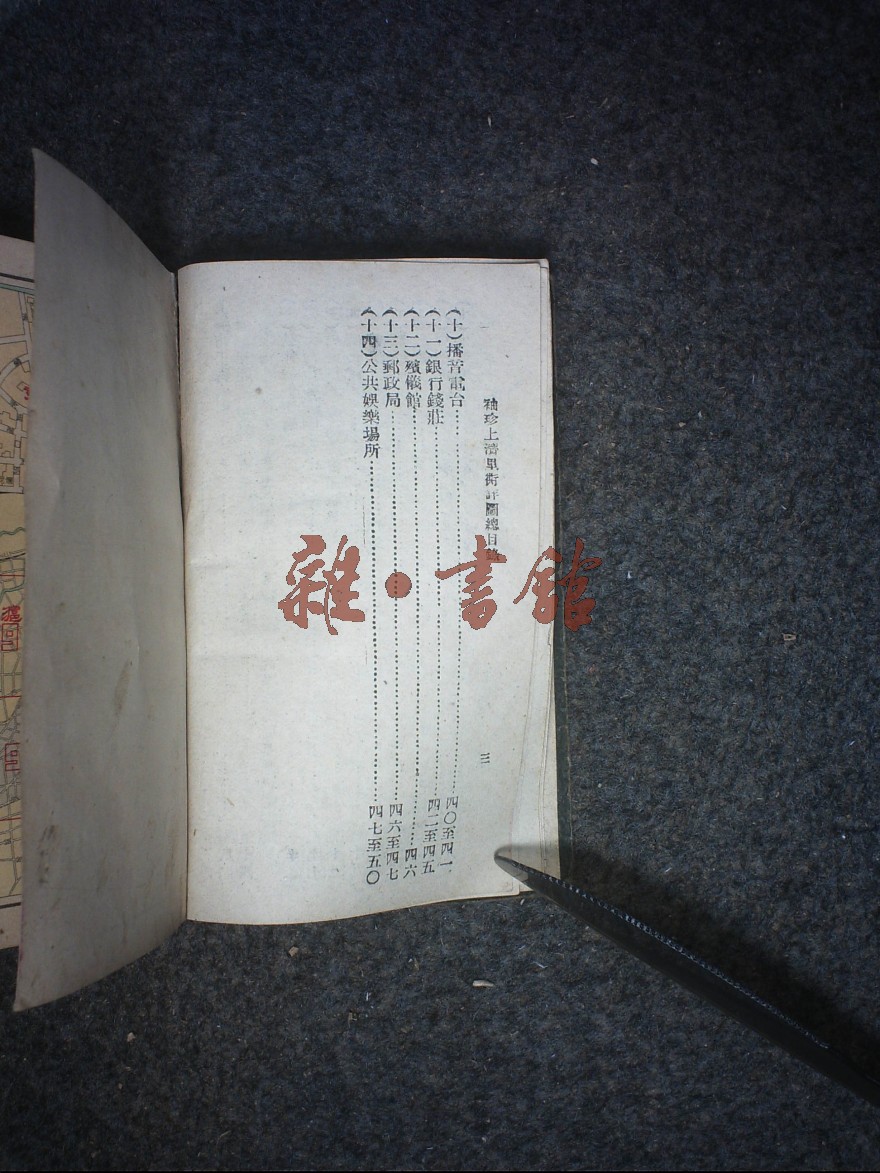 袖珍上海里衖詳圖總目錄
三
(十)播音電台……四〇至四一
(十一)銀行錢莊……四二至四五
(十二)殯儀館……四六
(十三)郵政局……四六至四七
(十四)公共娛樂場所……四七至五〇
雜·書館